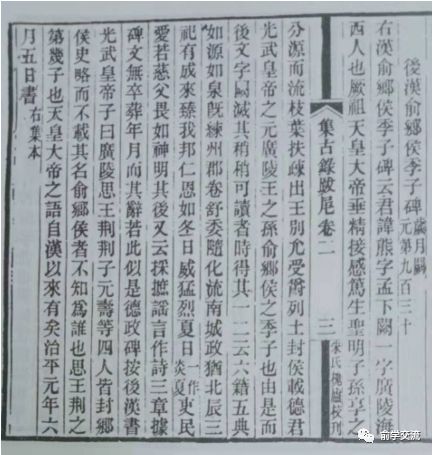 後漢俞鄉侯季子碑 歲月闕
元第九百三十
右漢俞鄉侯季子碑云君諱熊字孟下闕一字廣陵海
西人也厥祖天皇大帝垂精接感篤生聖明子孫享之
集古錄跋尾卷二 三 朱氏槐廬校刊
分源而流枝葉扶疎出王別允受爵列土封侯載德君
光武皇帝之元廣陵王之孫俞鄉侯之季子也由是而
後文字闕滅其稍稍可讀者時得其一二云六籍五典
如源如泉旣練州郡卷舒委隨化流南城政猶北辰三
祀有成來臻我邦仁恩如冬日威猛烈夏日 一作炎夏 吏民
愛若慈父畏如神明其後又云採摭謠言作詩三章據
碑文無卒葬年月而其辭若此似是德政碑按後漢書
光武皇帝子曰廣陵思王荆荆子元壽等四人皆封鄉
侯史略而不載其名俞鄉侯者不知爲誰也思王荆之
第幾子也天皇大帝之語自漢以來有矣治平元年六
月五日書 右集本
俞学交流